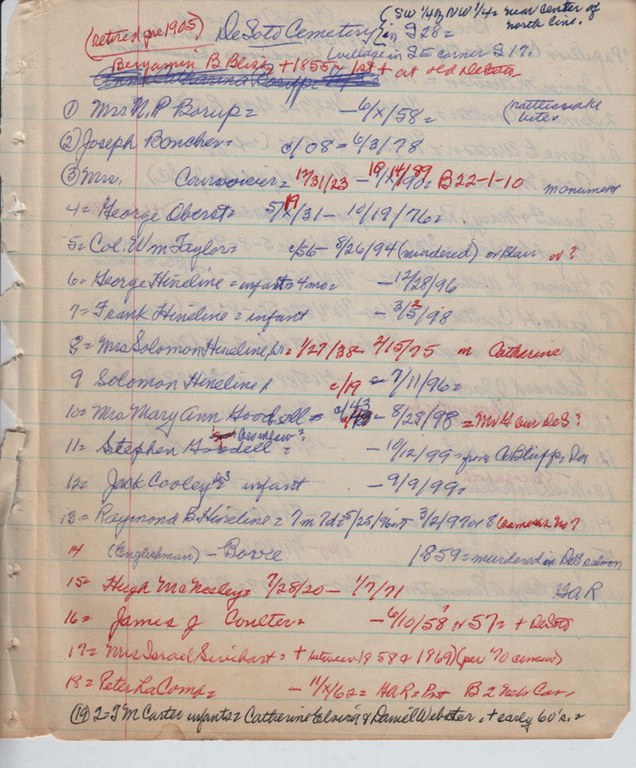 (SW 1/4 of NW 1/4 = near center of
(retired pre 1905) DeSoto Cemetery in § 28 = north line.
(village in SE corner § 17.
Benjamin B + 1855 1st + at old DeSoto
① Mrs N. P Borup = - 6/x/58 = (rattlesnake bite =
② Joseph Boncher = c/08 = 6/3/78
③ Mrs. Courvoisier = 12/31/23 - B22-1-10 monument
4 = George Oberst = 5/ /31 - 10/19/76 =
5 = Col. Wm Taylor = c/56 - 8/26/94 (murdered) or Blair or ?
6 = George Hineline = infant = 4 mo = - 12/28/96
7 = Frank Hineline = infant - 3/ /98
8 = Mrs Solomon Hineline = 1/27/38 - 2/15/75 m Catherine
9 Solomon Hineline c/19 = 7/11/96 =
10 = Mrs Mary Ann Goodsell = c/43 = 8/28/98 = Mr G our DeS ?
11 = Stephen = - 10/12/99 = from C Bluffs
12 = Jack Cooley infant - 9/9/99 =
13 = Raymond B. Hineline = 7 m 7 d = 5/25/ 3/2/97 or 8 (same as No 7
14 (Englishman) - 1859 = murdered in DeS saloon
15 = Hugh McNeeley = 7/28/20 - 1/7/71 GAR
16 = James J Coulter = - 6/10/58 ? or 57 = + DeSoto
17 = Mrs Israel Swihart = + between 1958 & 1969 (per '70 census)
18 = Peter LaComp = - 11/x/62 = GAR = Pvt B 2 Neb Cav
(19) 2 = J M Carter infants = Catherine Elvira & Daniel Webster, + early 60's. =